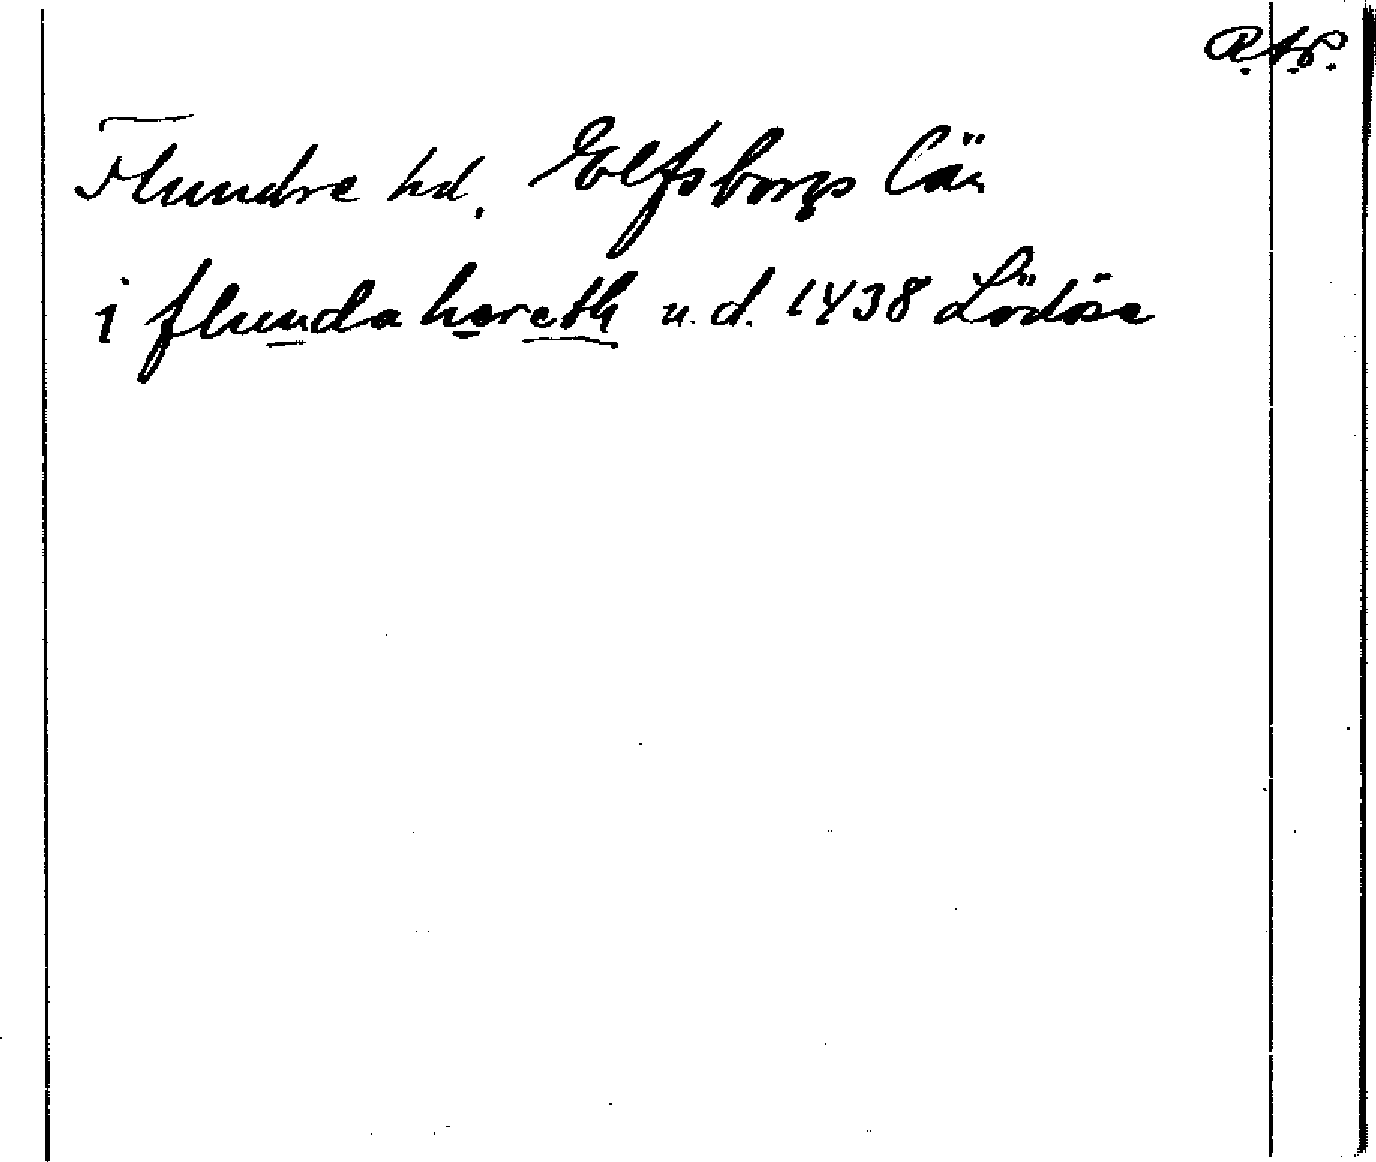 R.A.P.
Flundre hd. Elfsborgs län
i flunda hæreth u.d. 1438 Lödöse